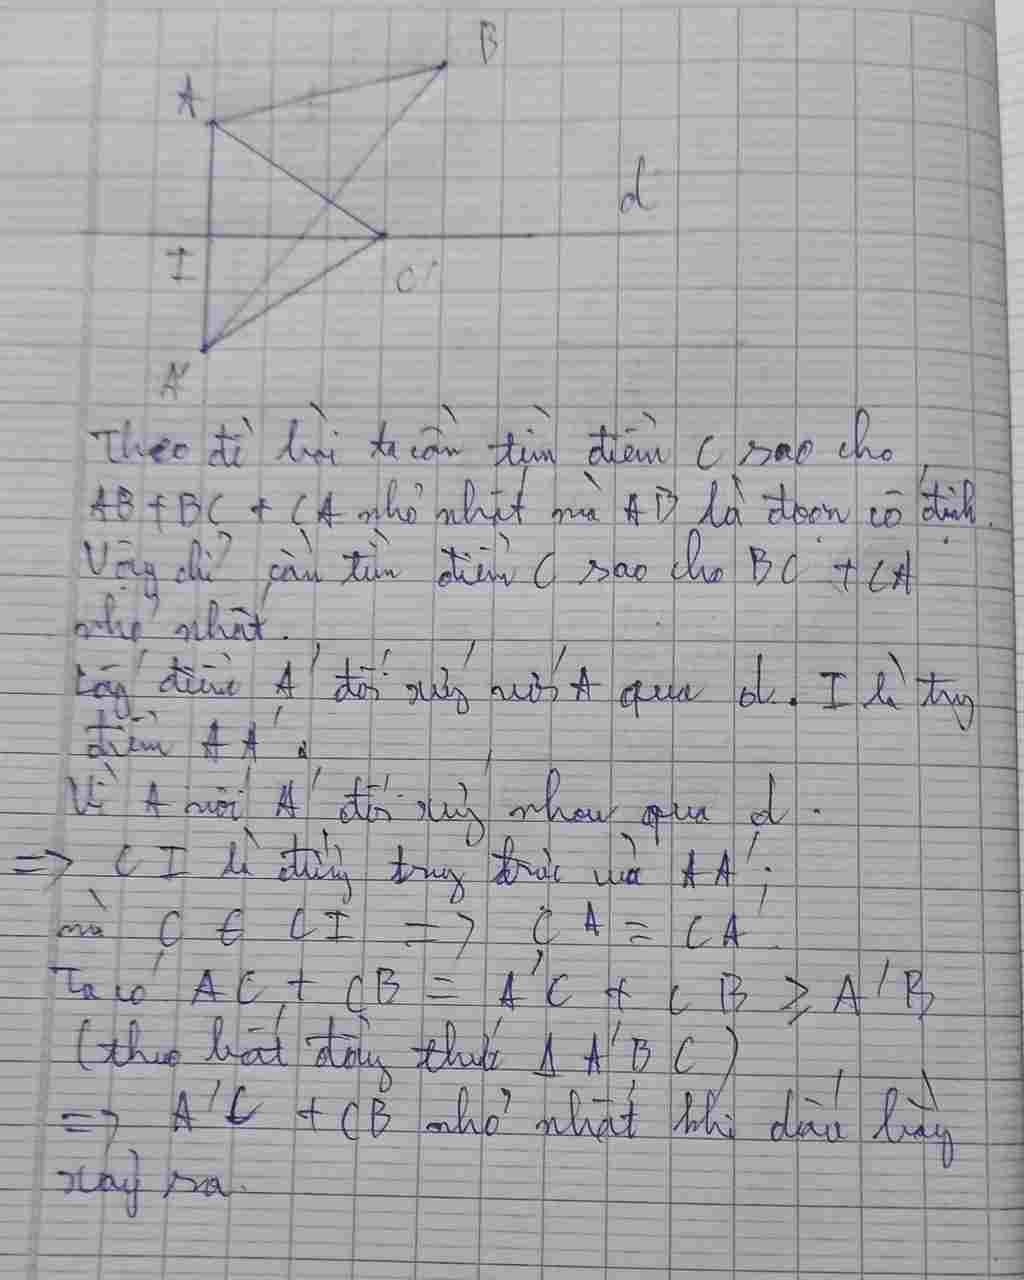 B
A
d
I
C
A'
Theo đề bài ta cần tìm điểm C sao cho
AB + BC + CA nhỏ nhất mà AB là đoạn cố định.
Vậy chỉ cần tìm điểm C sao cho BC + CA
nhỏ nhất.
Lấy điểm A' đối xứng với A qua d. I là trg
điểm AA'.
Vì A với A' đối xứng nhau qua d.
=> CI là đường trung trực của AA';
mà C ∈ CI => CA = CA'
Ta có AC + CB = A'C + CB ≥ A'B
(theo bất đẳng thức Δ A'BC)
=> A'C + CB nhỏ nhất khi dấu bằng
xảy ra.